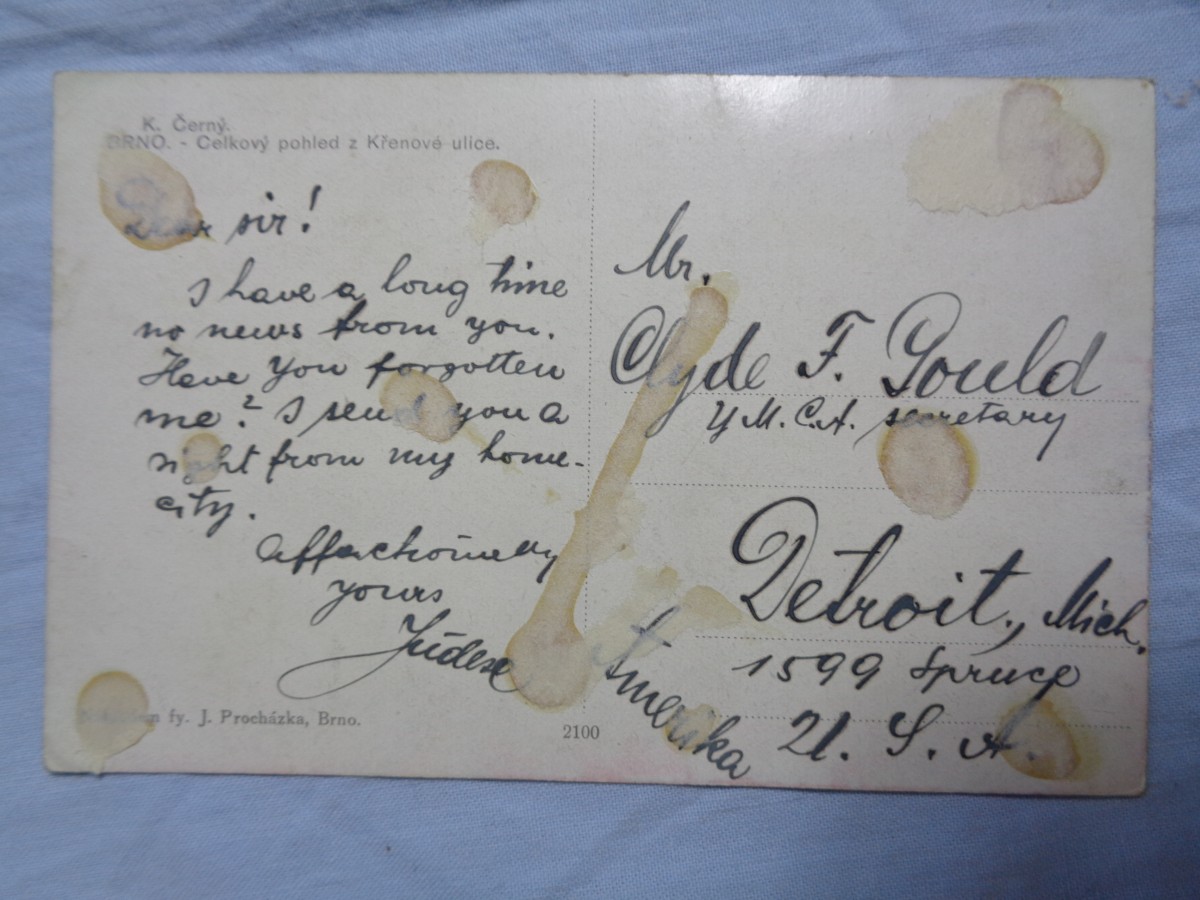 K. Černý.
BRNO. - Celkový pohled z Křenové ulice.
Dear sir!
I have a long time
no news from you.
Have you forgotten
me? I send you a
sight from my home-
city.
affectionnelly
yours
Mr.
Clyde F. Gould
Y.M.C.A. secretary
Detroit, Mich.
1599 Spruce
Amerika U. S. A.
Nákladem fy. J. Procházka, Brno.
2100